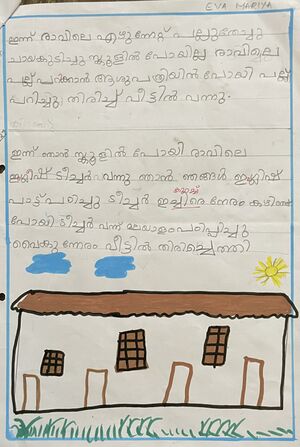 EVA MARIYA
ഇന്ന് രാവിലെ എഴുന്നേറ്റ് പല്ലുതേച്ചു
ചായകുടിച്ചു സ്കൂളിൽ പോയില്ല രാവിലെ
പല്ല് പറിക്കാൻ ആശുപത്രിയിൽ പോയി പല്ല്
പറിച്ചു തിരിച്ച് വീട്ടിൽ വന്നു.
ഇന്ന് ഞാൻ സ്കൂളിൽ പോയി രാവിലെ
ഇംഗ്ലീഷ് ടീച്ചർ വന്നു ഞാൻ ഞങ്ങൾ ഇംഗ്ലീഷ്
പാട്ട് പഠിച്ചു ടീച്ചർ ഇച്ചിരെ നേരം കഴിഞ്ഞ്
പോയി ടീച്ചർ വന്ന് മലയാളം പഠിപ്പിച്ചു
വൈകുന്നേരം വീട്ടിൽ തിരിച്ചെത്തി